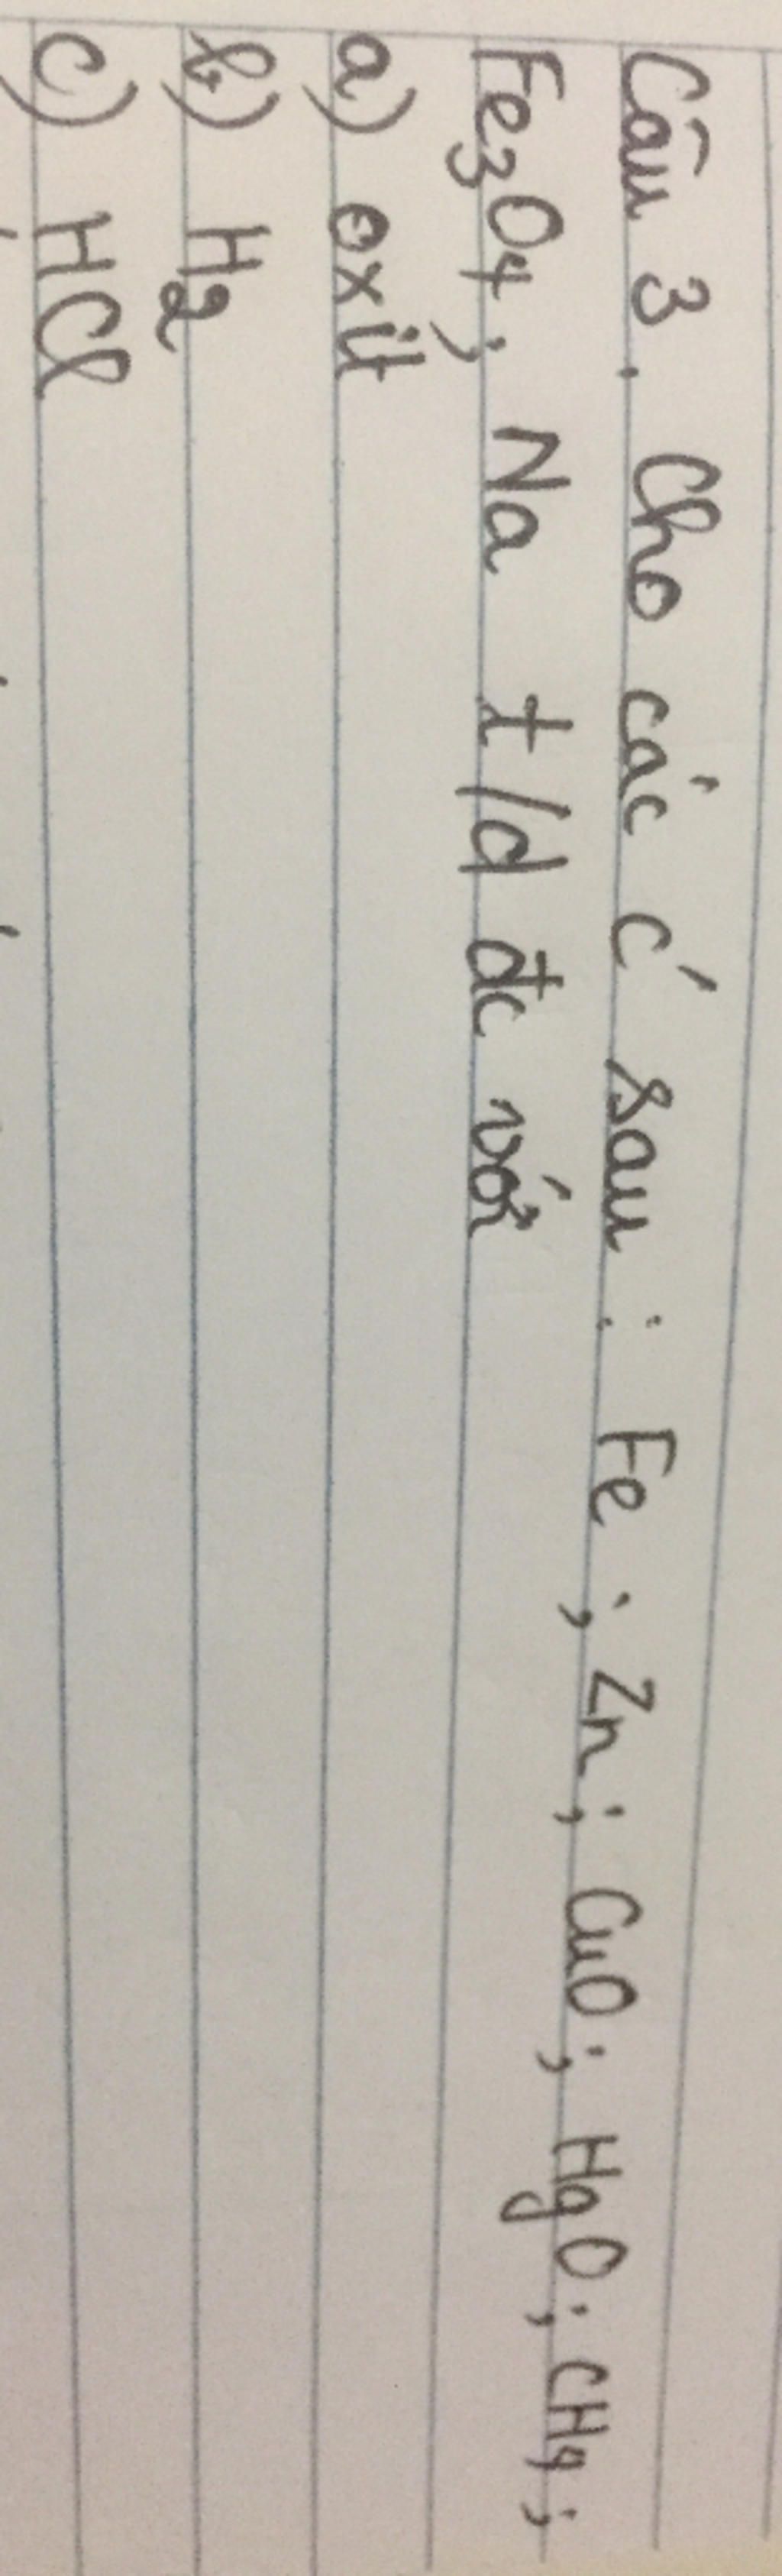 Câu 3. Cho các c' sau: Fe; Zn; CuO; HgO; CH4;
Fe3O4; Na t/d đc với
a) oxit
b) H2
c) HCl